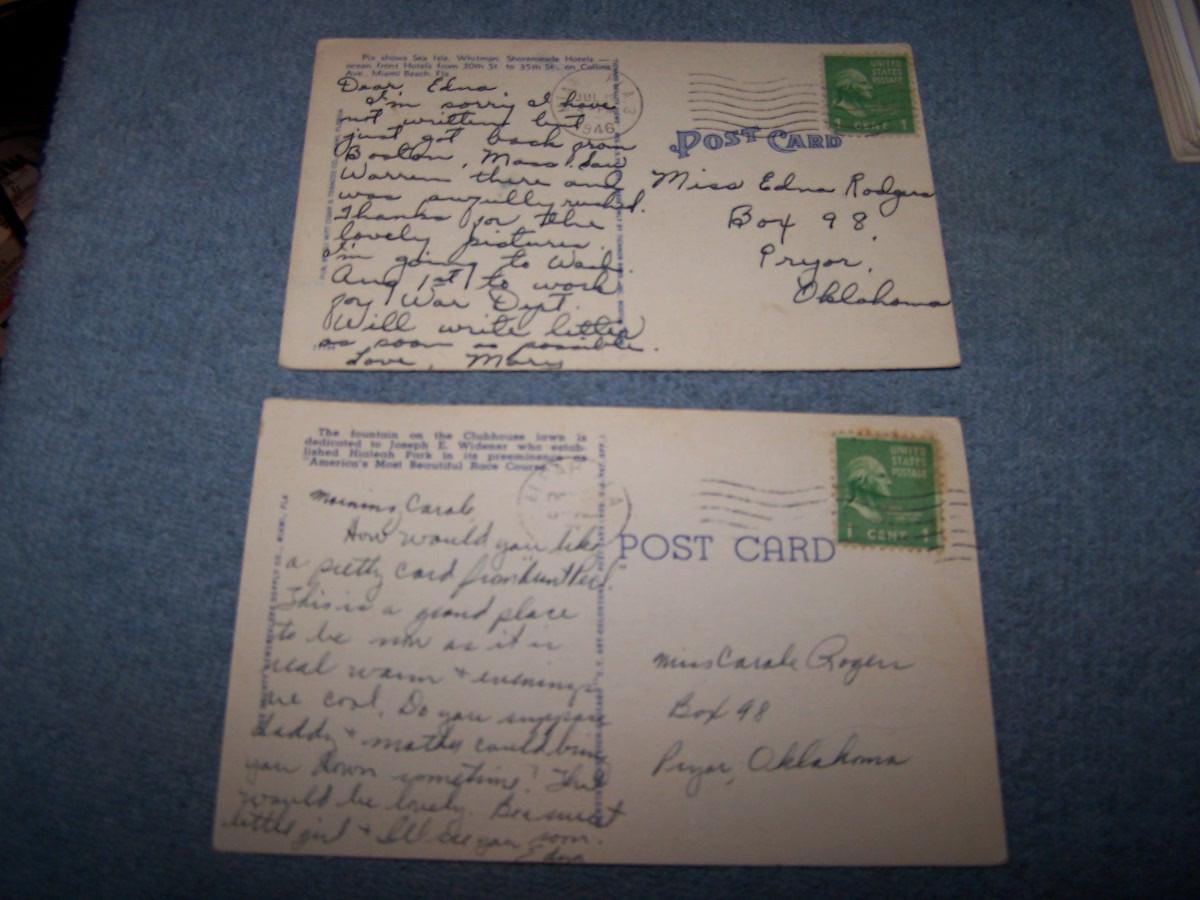 Pix shows Sea Isle, Whitman, Shoremede Hotels —
ocean front Hotels from 30th St. to 35th St., on Collins
Ave., Miami Beach, Fla.
Dear Edna
I'm sorry I have
not writting but
just got back from
Boston, Mass. Saw
Warren there and
was awfully rushed.
Thanks for the
lovely pictures.
I'm going to Wash.
Aug 1st to work
for War Dept.
Will write letter
as soon as possible.
Love, Mary
JUL
1946
UNITED
STATES
POSTAGE
1 CENT 1
POST CARD
Miss Edna Rodgers
Box 98,
Pryor,
Oklahoma
The fountain on the Clubhouse lawn is
dedicated to Joseph E. Widener who estab-
lished Hialeah Park in its preeminence as
"America's Most Beautiful Race Course."
Morning Carole
How would you like
a pretty card from
This is a grand place
to be now as it is
real warm + evenings
are cool. Do you suppose
Daddy + mother could bring
you down sometime? That
would be lovely. Be a sweet
little girl + I'll see you soon.
Edna
UNITED
STATES
POSTAGE
1 CENT 1
POST CARD
Miss Carole Rogers
Box 98
Pryor, Oklahoma